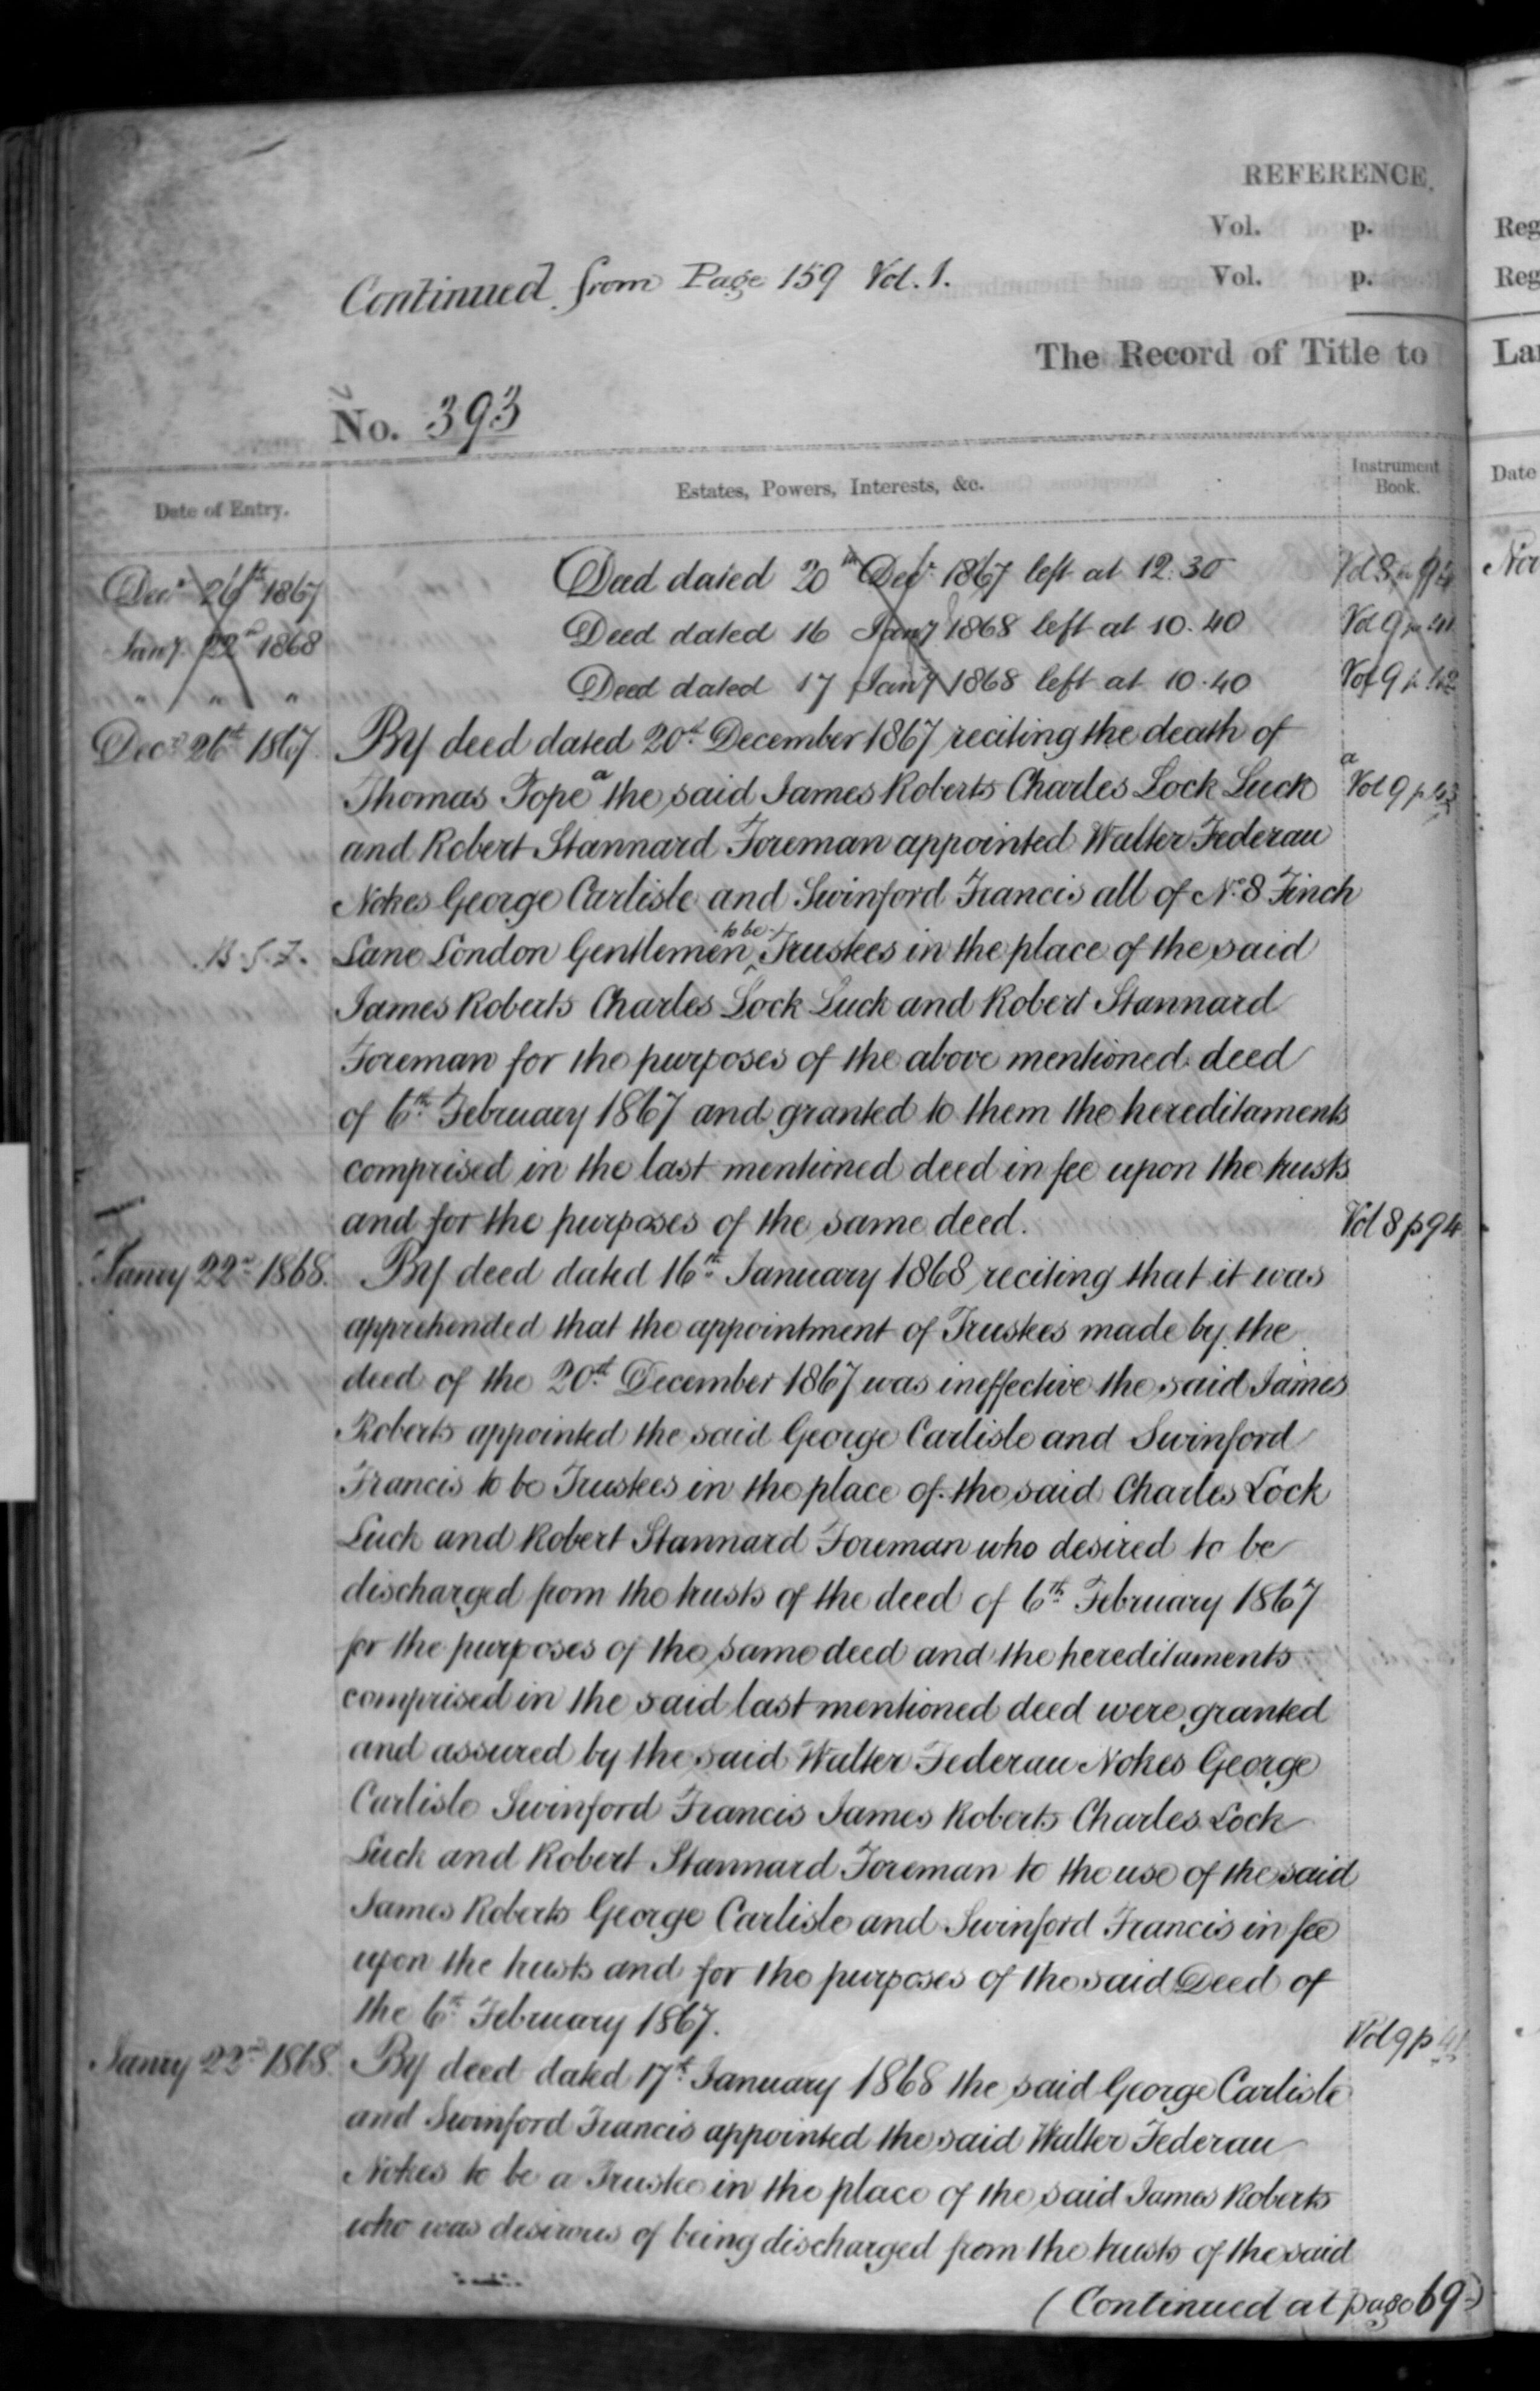 REFERENCE.
Vol. p.
Vol. p.
Continued from Page 159 Vol. 1.
The Record of Title to
No. 393
Date of Entry.
Estates, Powers, Interests, &c.
Instrument Book.
Decr 26th 1867 Deed dated 20th Decr 1867 left at 12.30 Vol 8 p 94
Jany 22nd 1868 Deed dated 16 Jany 1868 left at 10.40 Vol 9 p 41
" " " Deed dated 17 Jany 1868 left at 10.40 Vol 9 p 42
Decr 26th 1867 By deed dated 20th December 1867 reciting the death of
Thomas Pope a the said James Roberts Charles Lock Luck a Vol 9 p 43
and Robert Stannard Foreman appointed Walter Federau
Nokes George Carlisle and Swinford Francis all of No. 8 Finch
Lane London Gentlemen to be Trustees in the place of the said
James Roberts Charles Lock Luck and Robert Stannard
Foreman for the purposes of the above mentioned deed
of 6th February 1867 and granted to them the hereditaments
comprised in the last mentioned deed in fee upon the trusts
and for the purposes of the same deed. Vol 8 p 94
Janry 22nd 1868. By deed dated 16th January 1868 reciting that it was
apprehended that the appointment of Trustees made by the
deed of the 20th December 1867 was ineffective the said James
Roberts appointed the said George Carlisle and Swinford
Francis to be Trustees in the place of the said Charles Lock
Luck and Robert Stannard Foreman who desired to be
discharged from the trusts of the deed of 6th February 1867
for the purposes of the same deed and the hereditaments
comprised in the said last mentioned deed were granted
and assured by the said Walter Federau Nokes George
Carlisle Swinford Francis James Roberts Charles Lock
Luck and Robert Stannard Foreman to the use of the said
James Roberts George Carlisle and Swinford Francis in fee
upon the trusts and for the purposes of the said Deed of
the 6th February 1867. Vol 9 p 41
Janry 22nd 1868. By deed dated 17th January 1868 the said George Carlisle
and Swinford Francis appointed the said Walter Federau
Nokes to be a Trustee in the place of the said James Roberts
who was desirous of being discharged from the trusts of the said
(Continued at page 69)
Reg
Reg
Lan
Date